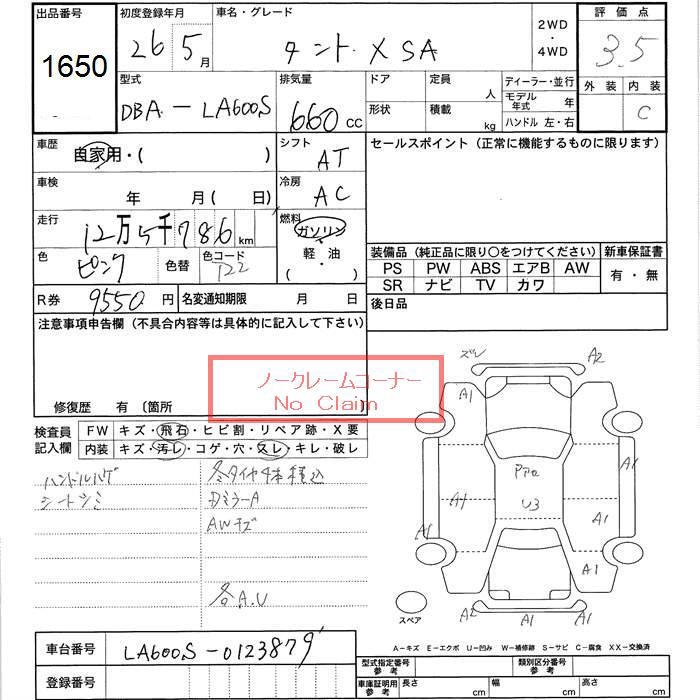 出品番号 初度登録年月 車名・グレード 2WD・4WD 評価点
1650 26 5月 タント X SA 3.5
外装 内装
C
型式 排気量 ドア 定員 人 ディーラー・並行
DBA - LA600S 660 cc 形状 積載 kg モデル年式 年
ハンドル 左・右
車歴 自家用・( ) シフト AT セールスポイント (正常に機能するものに限ります)
車検 年 月( 日) 冷房 AC
走行 12万5千786km 燃料 ガソリン
軽・油
( ・ )
色 ピンク 色替 色コード
装備品 (純正品に限り○をつけてください) 新車保証書
PS PW ABS エアB AW 有・無
SR ナビ TV カワ
R券 9550円 名変通知期限 月 日 後日品
注意事項申告欄 (不具合内容等は具体的に記入して下さい)
ノークレームコーナー
No Claim
修復歴 有 〔箇所
検査員記入欄 FW キズ・飛石・ヒビ割・リペア跡・X要
内装 キズ・汚レ・コゲ・穴・スレ・キレ・破レ
ハンドルハゲ 冬タイヤ4本積込
シートシミ
AWキズ
各A.U
ズレ A2
A1
A1
A1 A1
U3
A1 A1
A2 A1 A1
スペア
A-キズ E-エクボ U-凹み W-補修跡 S-サビ C-腐食 XX-交換済
車台番号 LA600S-0123879
登録番号
型式指定番号 参考 類別区分番号 参考
車庫証明用 参考 長さ cm 幅 cm 高さ cm